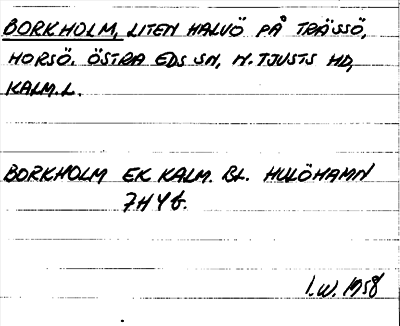 BORKHOLM, LITEN HALVÖ PÅ TRÄSSÖ,
HORSÖ. ÖSTRA EDS SN, N. TJUSTS HD,
KALM. L.
BORKHOLM EK KALM. BL. HULÖHAMN
7H4f.
I.W. 1958